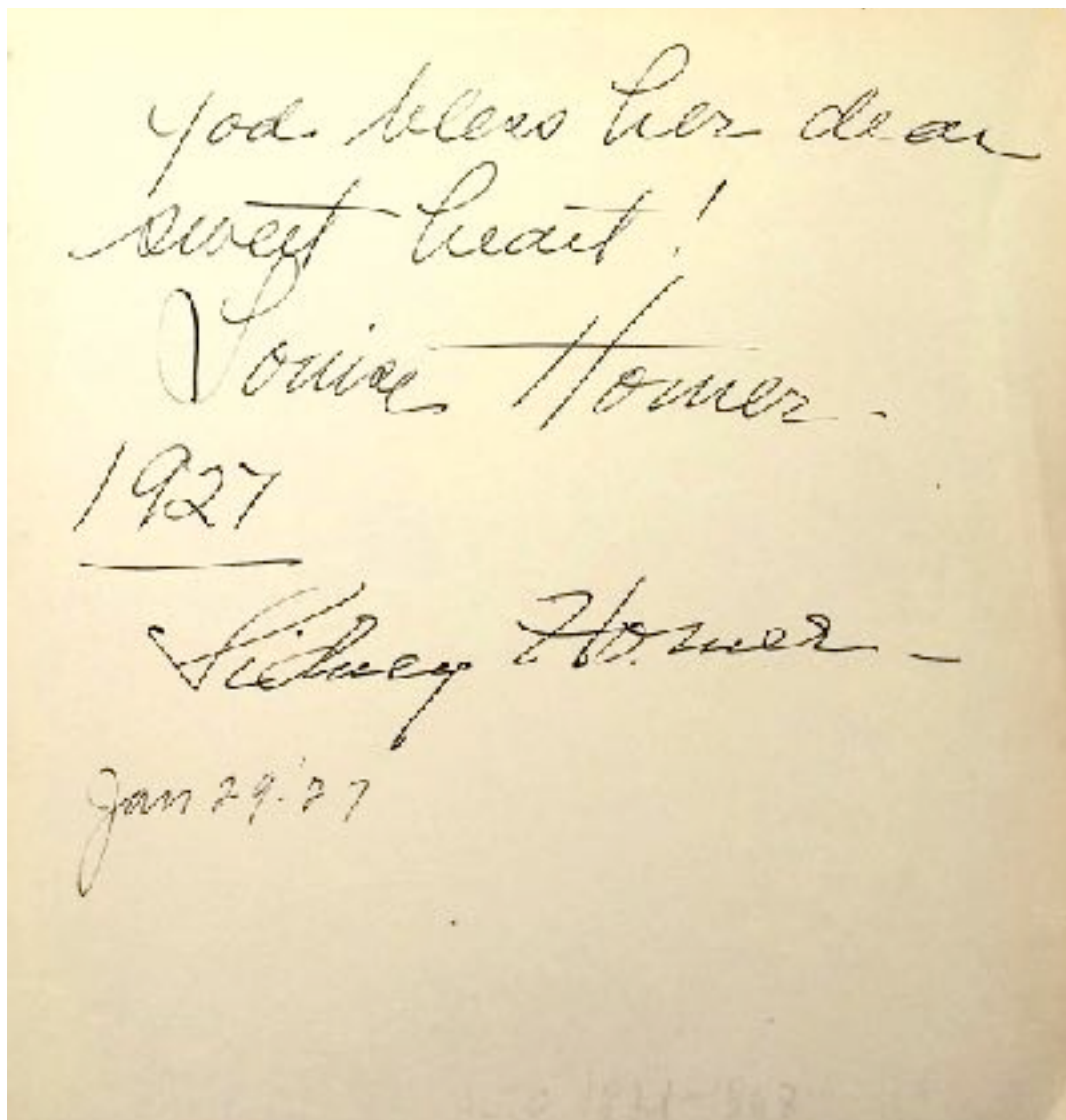 God bless her dear
sweet heart!
Louise Homer -
1927
Sidney Homer -
Jan 29. '27